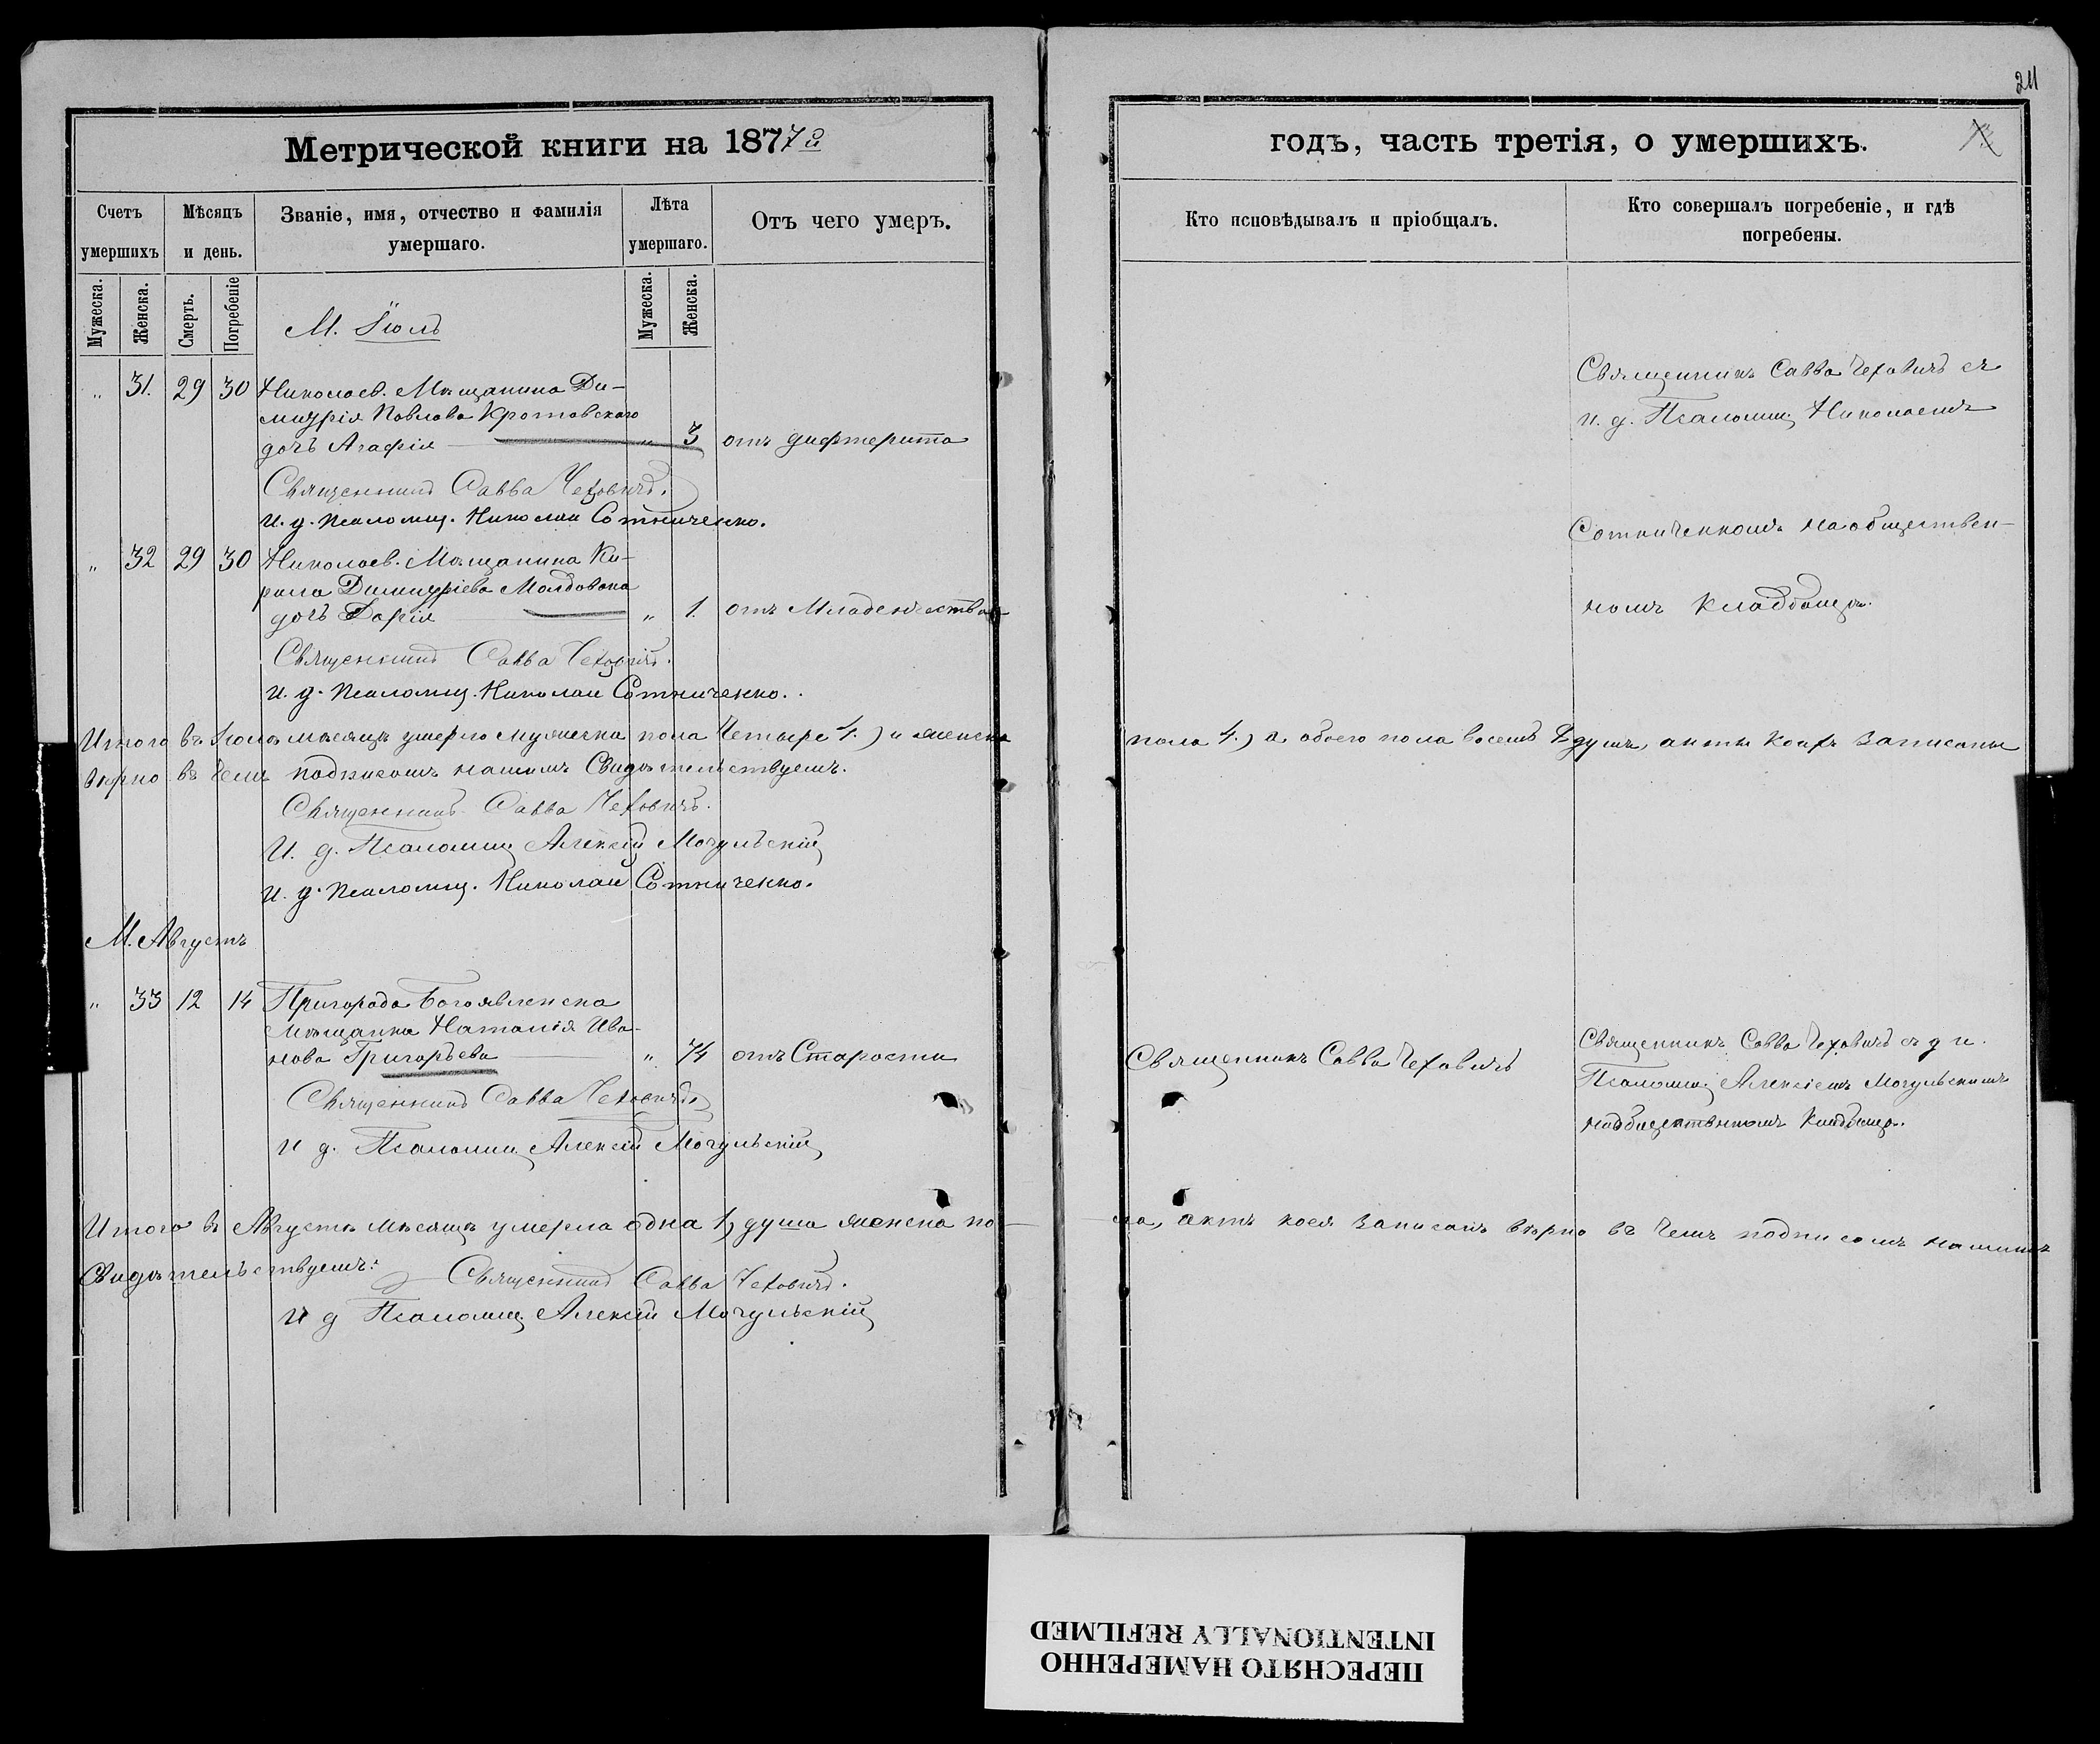 211
Метрической книги на 1877й
годъ, часть третія, о умершихъ.
Счетъ умершихъ
Мѣсяцъ и день.
Званіе, имя, отчество и фамилія умершаго.
Лѣта умершаго.
Отъ чего умеръ.
Кто исповѣдывалъ и пріобщалъ.
Кто совершалъ погребеніе, и гдѣ погребены.
Мужеска.
Женска.
Смерть.
Погребеніе
Мужеска.
Женска.
М. Іюль
„ 31. 29 30 Николаев. Мѣщанина Ди-
митрія Павлова Кротовскаго
дочь Агафія „ 3 отъ дифтерита
Священникъ Савва Чеховичъ съ
и. д. Псаломщ. Николаемъ
Священникъ Савва Чеховичъ.
и. д. псаломщ. Николай Сотниченко.
Сотниченкомъ на обществен-
„ 32 29 30 Николаев. Мѣщанина Ки-
рила Димитріева Молдована
дочь Дарія „ 1. отъ Младенчества
номъ кладбищѣ.
Священникъ Савва Чеховичъ.
и. д. псаломщ. Николай Сотниченко.
Итого въ Іюлѣ мѣсяцѣ умерло мужеска пола Четыре 4.) и женска
пола 4.) а обоего пола восемь 8 душъ, акты коихъ записаны
вѣрно въ чемъ подписомъ нашимъ Свидѣтельствуемъ.
Священникъ Савва Чеховичъ.
И. д. Псаломщ. Алексій Мочульскій
и. д. псаломщ. Николай Сотниченко.
М. Августъ
„ 33 12 14 Пригорода Богоявленска
мѣщанка Наталія Ива-
нова Григорьева „ 74 отъ Старости
Священникъ Савва Чеховичъ
Священникъ Савва Чеховичъ съ
Псаломщ. Алексіемъ Мочульскимъ
на общественномъ Кладбищѣ.
Священникъ Савва Чеховичъ
и д. Псаломщ. Алексій Мочульскій
Итого въ Августѣ мѣсяцѣ умерла одна 1) душа женска по-
ла, актъ коея записанъ вѣрно въ чемъ подписомъ нашимъ
Свидѣтельствуемъ:
Священникъ Савва Чеховичъ.
и д Псаломщ. Алексій Мочульскій
ПЕРЕСНЯТО НАМЕРЕННО
INTENTIONALLY REFILMED